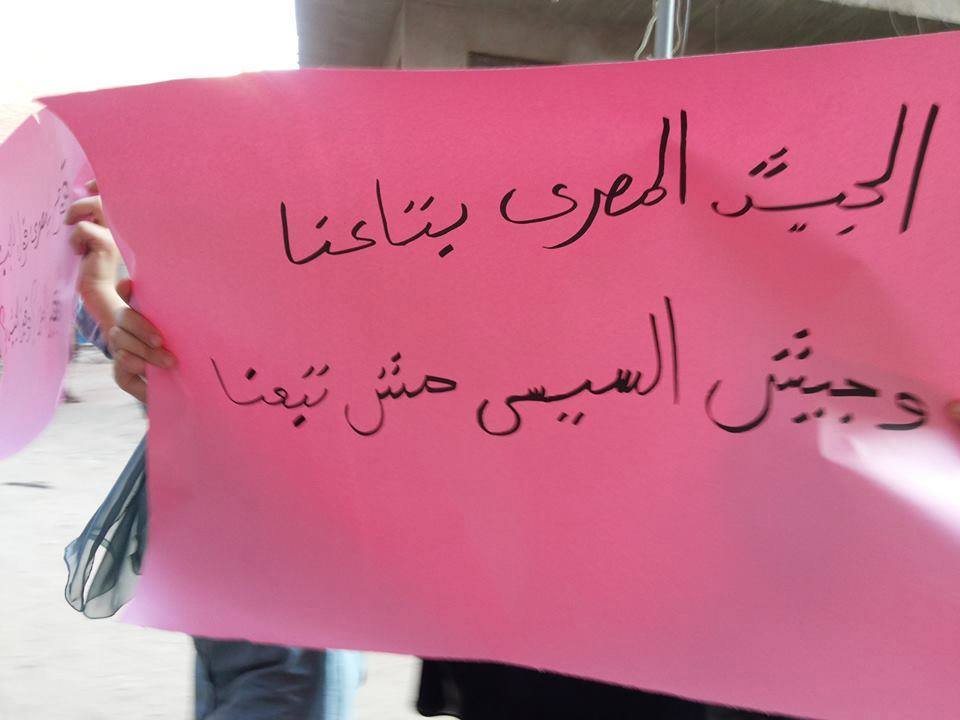 الجيش المصرى بتاعنا
وجيش السيسى مش تبعنا